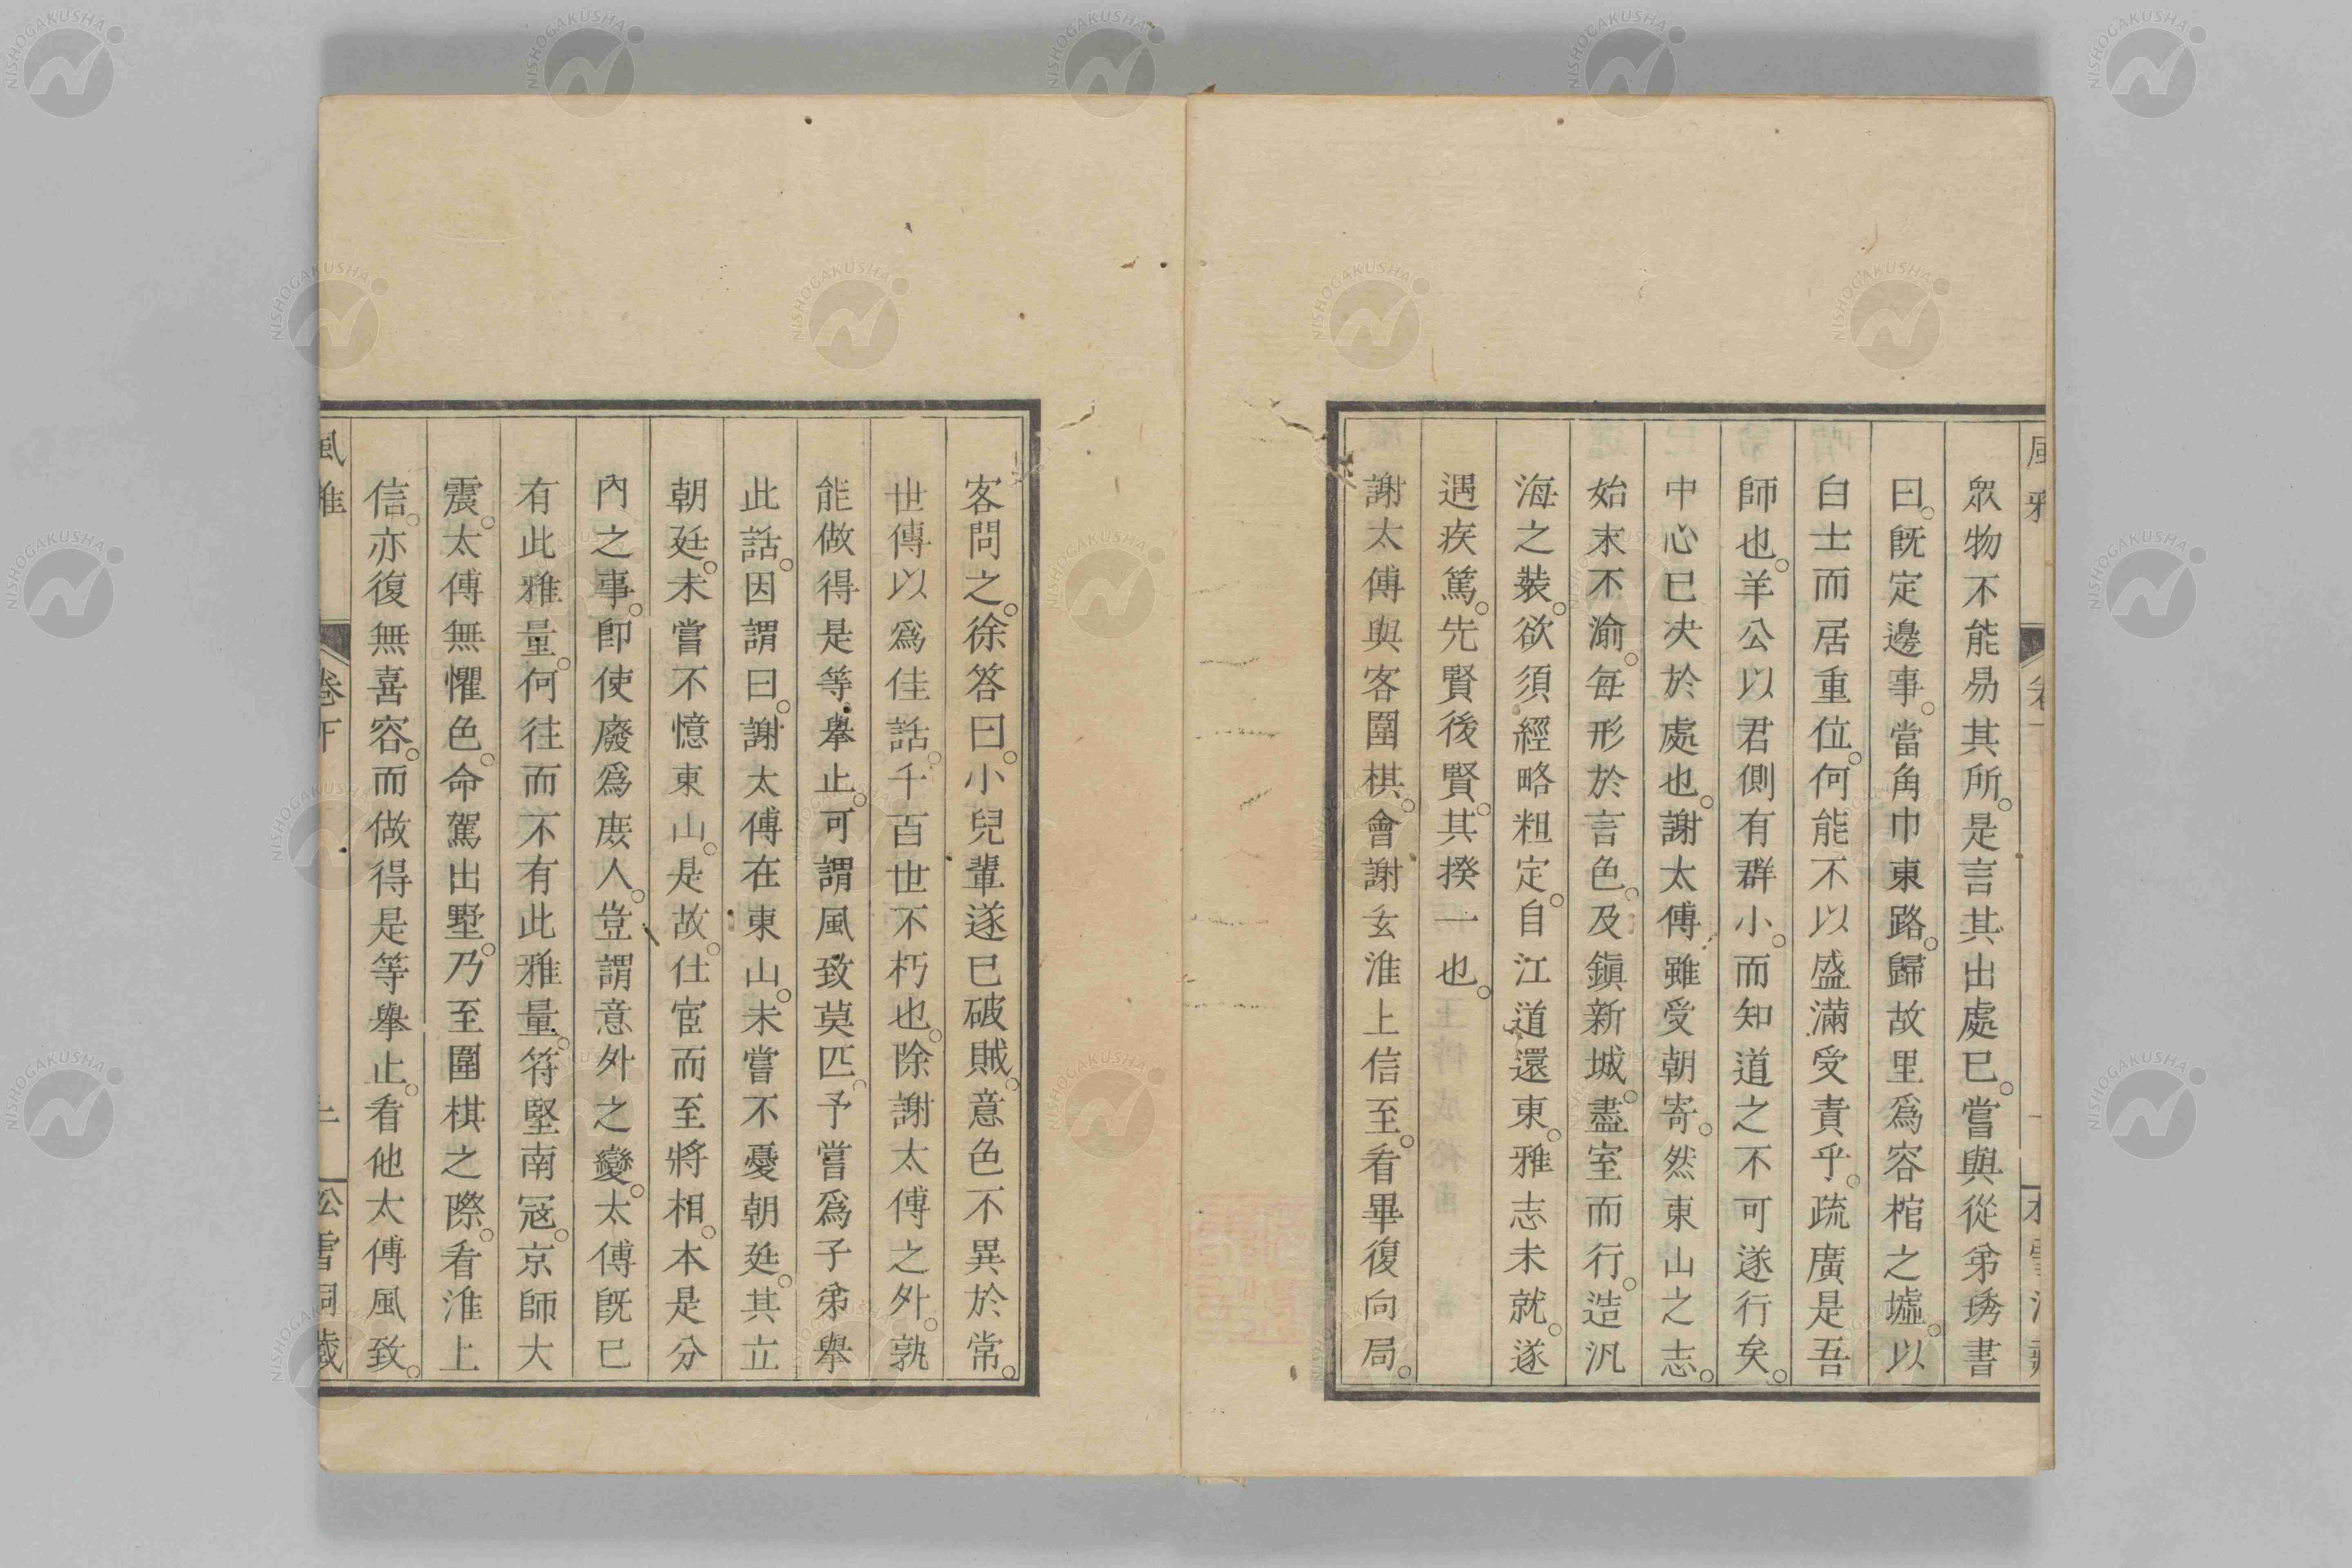 眾物不能易其所。是言其出處已。嘗與從弟琇書
曰。旣定邊事。當角巾東路。歸故里爲容棺之墟。以
白士而居重位。何能不以盛滿受責乎。疏廣是吾
師也。羊公以君側有群小。而知道之不可遂行矣。
中心已决於處也。謝太傅雖受朝寄。然東山之志。
始末不渝。每形於言色。及鎭新城。盡室而行。造汎
海之裝。欲須經略粗定。自江道還東。雅志未就。遂
遇疾篤。先賢後賢。其揆一也。
謝太傅與客圍棋。會謝玄淮上信至。看畢復向局。
客問之。徐答曰。小兒輩遂已破賊。意色不異於常。
世傳以爲佳話。千百世不朽也。除謝太傅之外。孰
能做得是等擧止。可謂風致莫匹。予嘗爲子弟擧
此話。因謂曰。謝太傅在東山。未嘗不憂朝廷。其立
朝廷。未嘗不憶東山。是故。仕宦而至將相。本是分
內之事。卽使廢爲庶人。豈謂意外之變。太傅旣已
有此雅量。何往而不有此雅量。符堅南寇。京師大
震。太傅無懼色。命駕出墅。乃至圍棋之際。看淮上
信。亦復無喜容。而做得是等擧止。看他太傅風致。
風雅
卷下
NISHOGAKUSHA